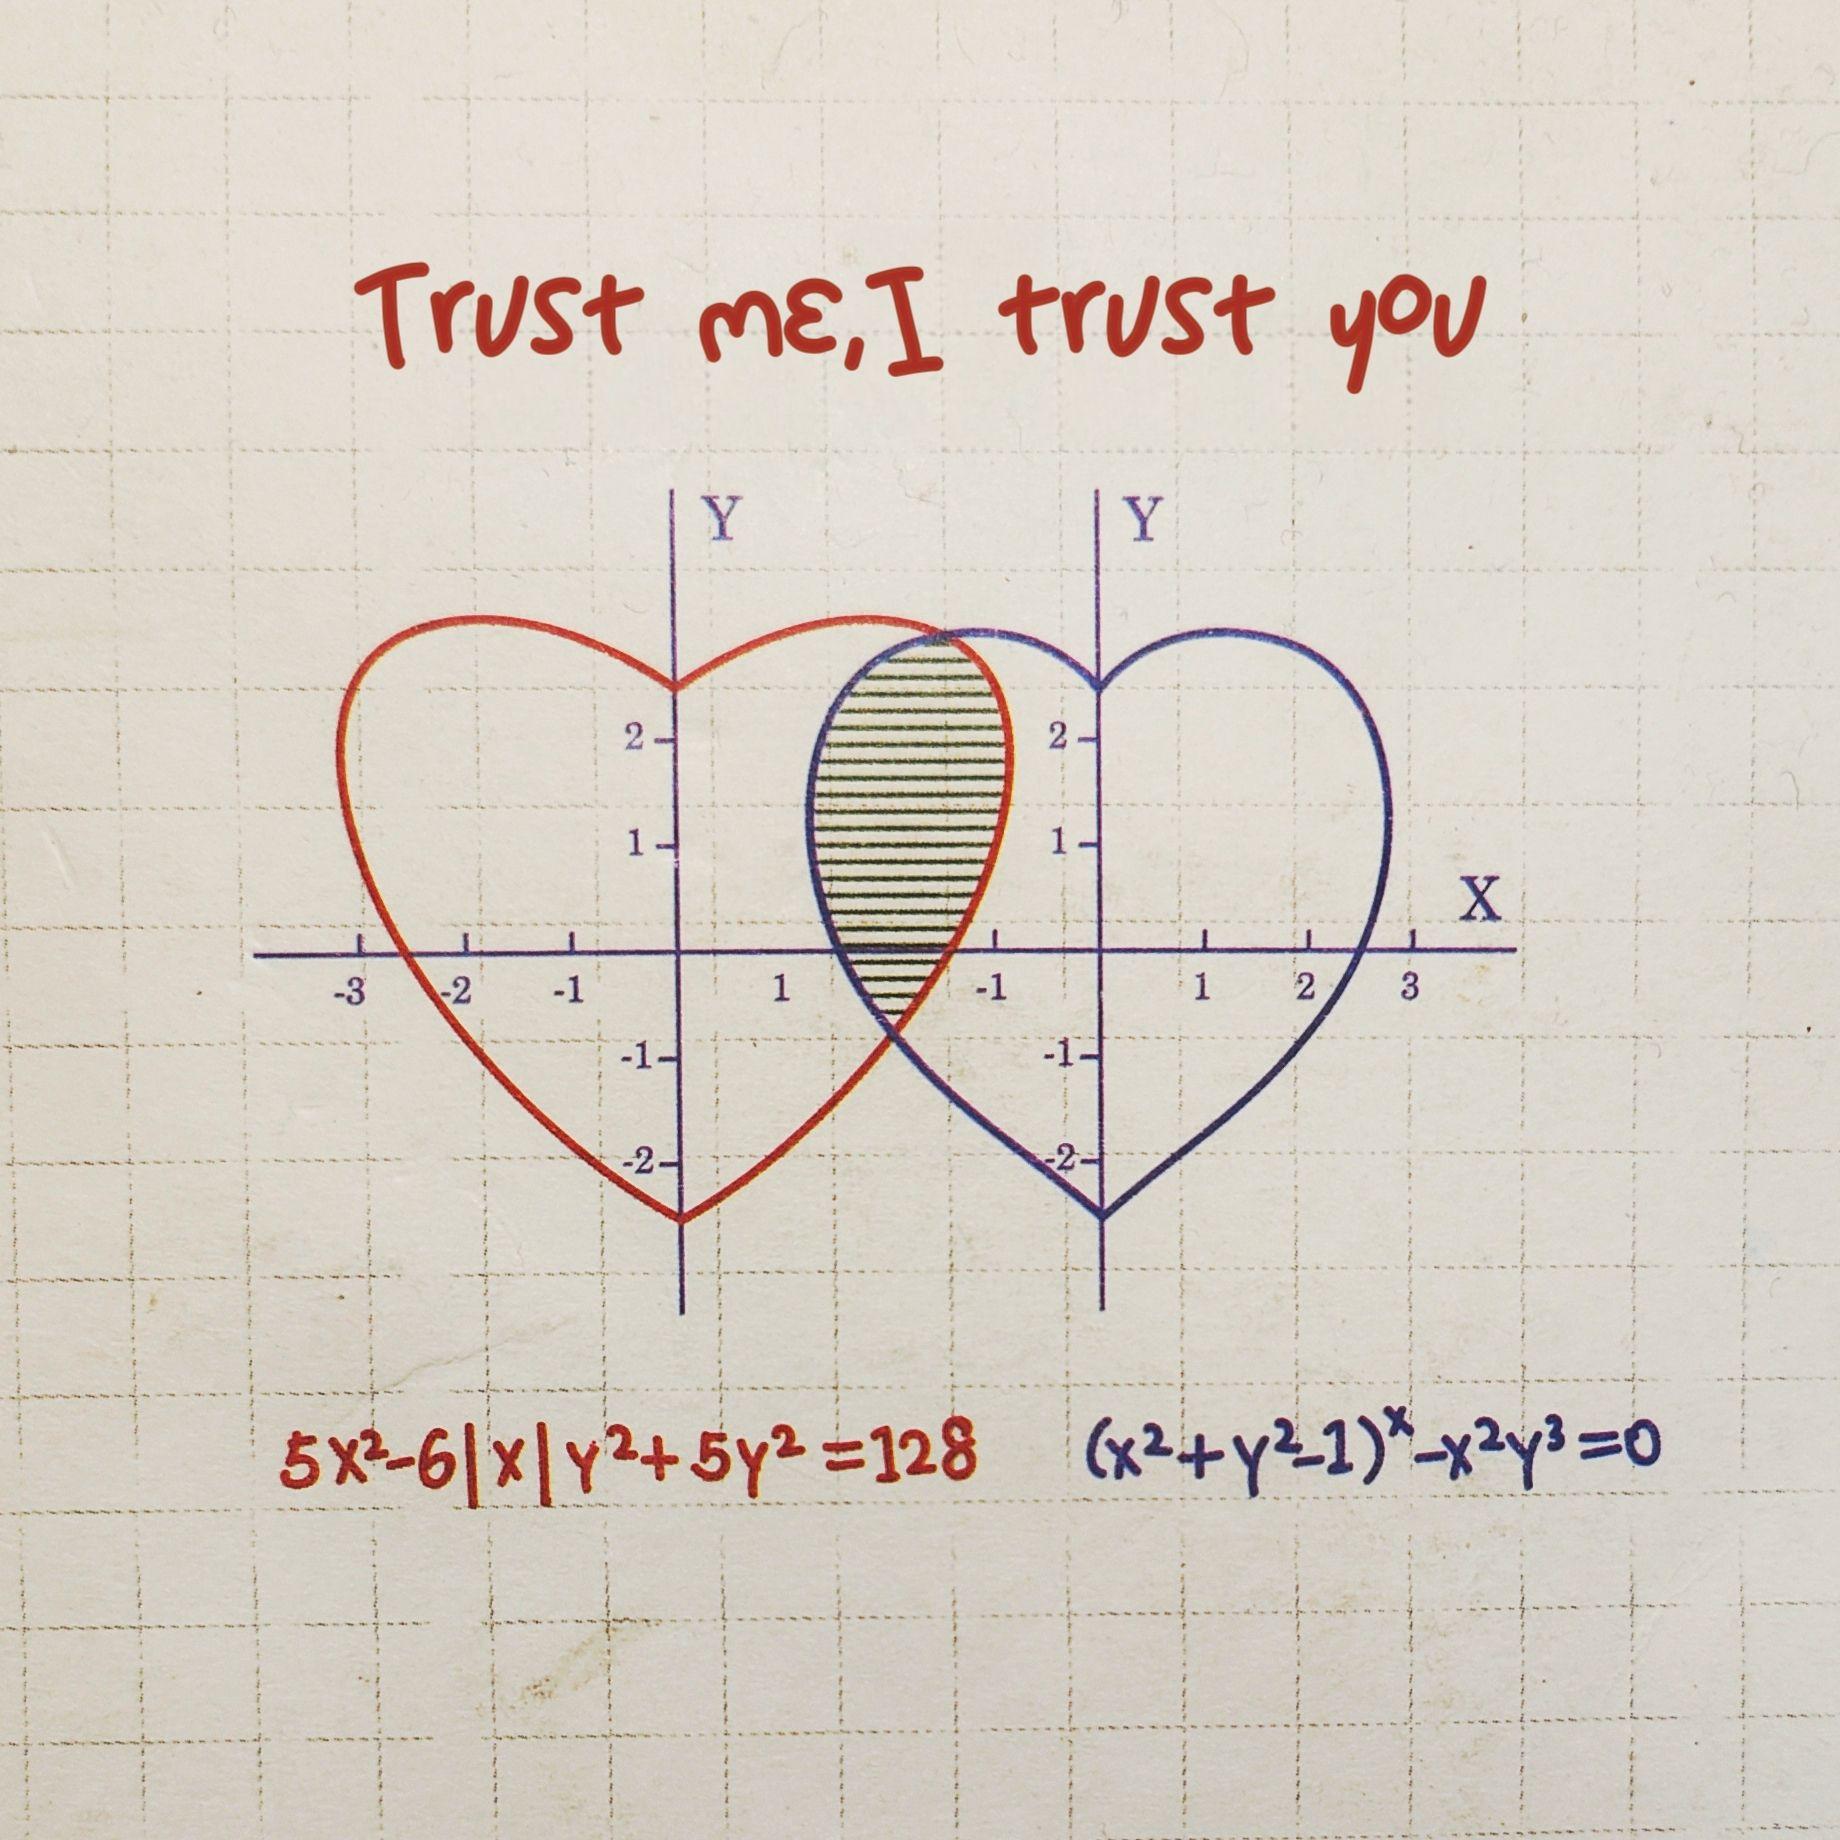 Trust me, I trust you
Y Y
2 2
1 1
X
-3 -2 -1 1 -1 1 2 3
-1 -1
-2 -2
5x²-6|x|y²+5y²=128 (x²+y²-1)ˣ-x²y³=0